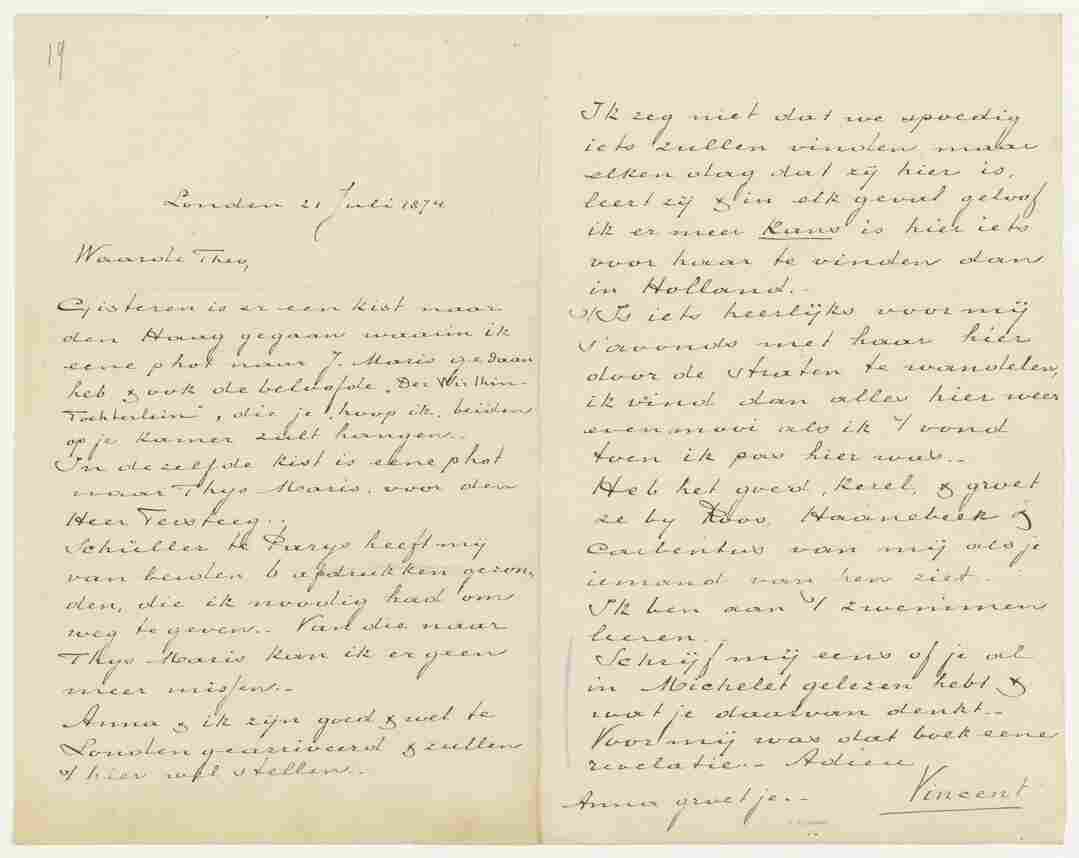 19
Londen 21 Juli 1874
Waarde Theo,
Gisteren is er een kist naar
den Haag gegaan waarin ik
eene phot naar J. Maris gedaan
heb & ook de beloofde „Der Wirthin-
Töchterlein", die je, hoop ik, beiden
op je kamer zult hangen.-
In dezelfde kist is eene phot
naar Thys Maris, voor den
Heer Tersteeg.-
Schüller te Parys heeft mij
van beiden 6 afdrukken gezon-
den, die ik noodig had om
weg te geven.- Van die naar
Thys Maris kan ik er geen
meer missen.-
Anna & ik zijn goed & wel te
Londen gearriveerd & zullen
't hier wel stellen.-
Ik zeg niet dat we spoedig
iets zullen vinden maar
elken dag dat zij hier is,
leert zij & in elk geval geloof
ik er meer kans is hier iets
voor haar te vinden dan
in Holland.-
't Is iets heerlijks voor mij
s'avonds met haar hier
door de straten te wandelen,
ik vind dan alles hier weer
even mooi als ik 't vond
toen ik pas hier was.-
Heb het goed, kerel, & groet
ze by Roos, Haanebeek &
Carbentus van mij als je
iemand van hen ziet.
Ik ben aan 't zwemmen
leeren.
Schrijf mij eens of je al
in Michelet gelezen hebt &
wat je daarvan denkt.-
Voor mij was dat boek eene
revelatie.- Adieu
Vincent
Anna groet je.-